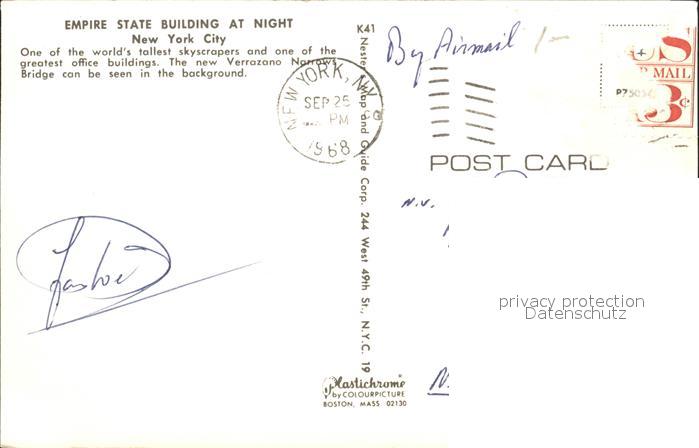 EMPIRE STATE BUILDING AT NIGHT
New York City
One of the world's tallest skyscrapers and one of the
greatest office buildings. The new Verrazano Narrows
Bridge can be seen in the background.
K41
Nester's Map and Guide Corp. 244 West 49th St., N.Y.C. 19
NEW YORK, N.Y.
SEP 25
PM
1968
By Airmail 1-
US
R MAIL
3¢
POST CARD
N.V.
N.
Plastichrome
by COLOURPICTURE
BOSTON, MASS 02130
privacy protection
Datenschutz